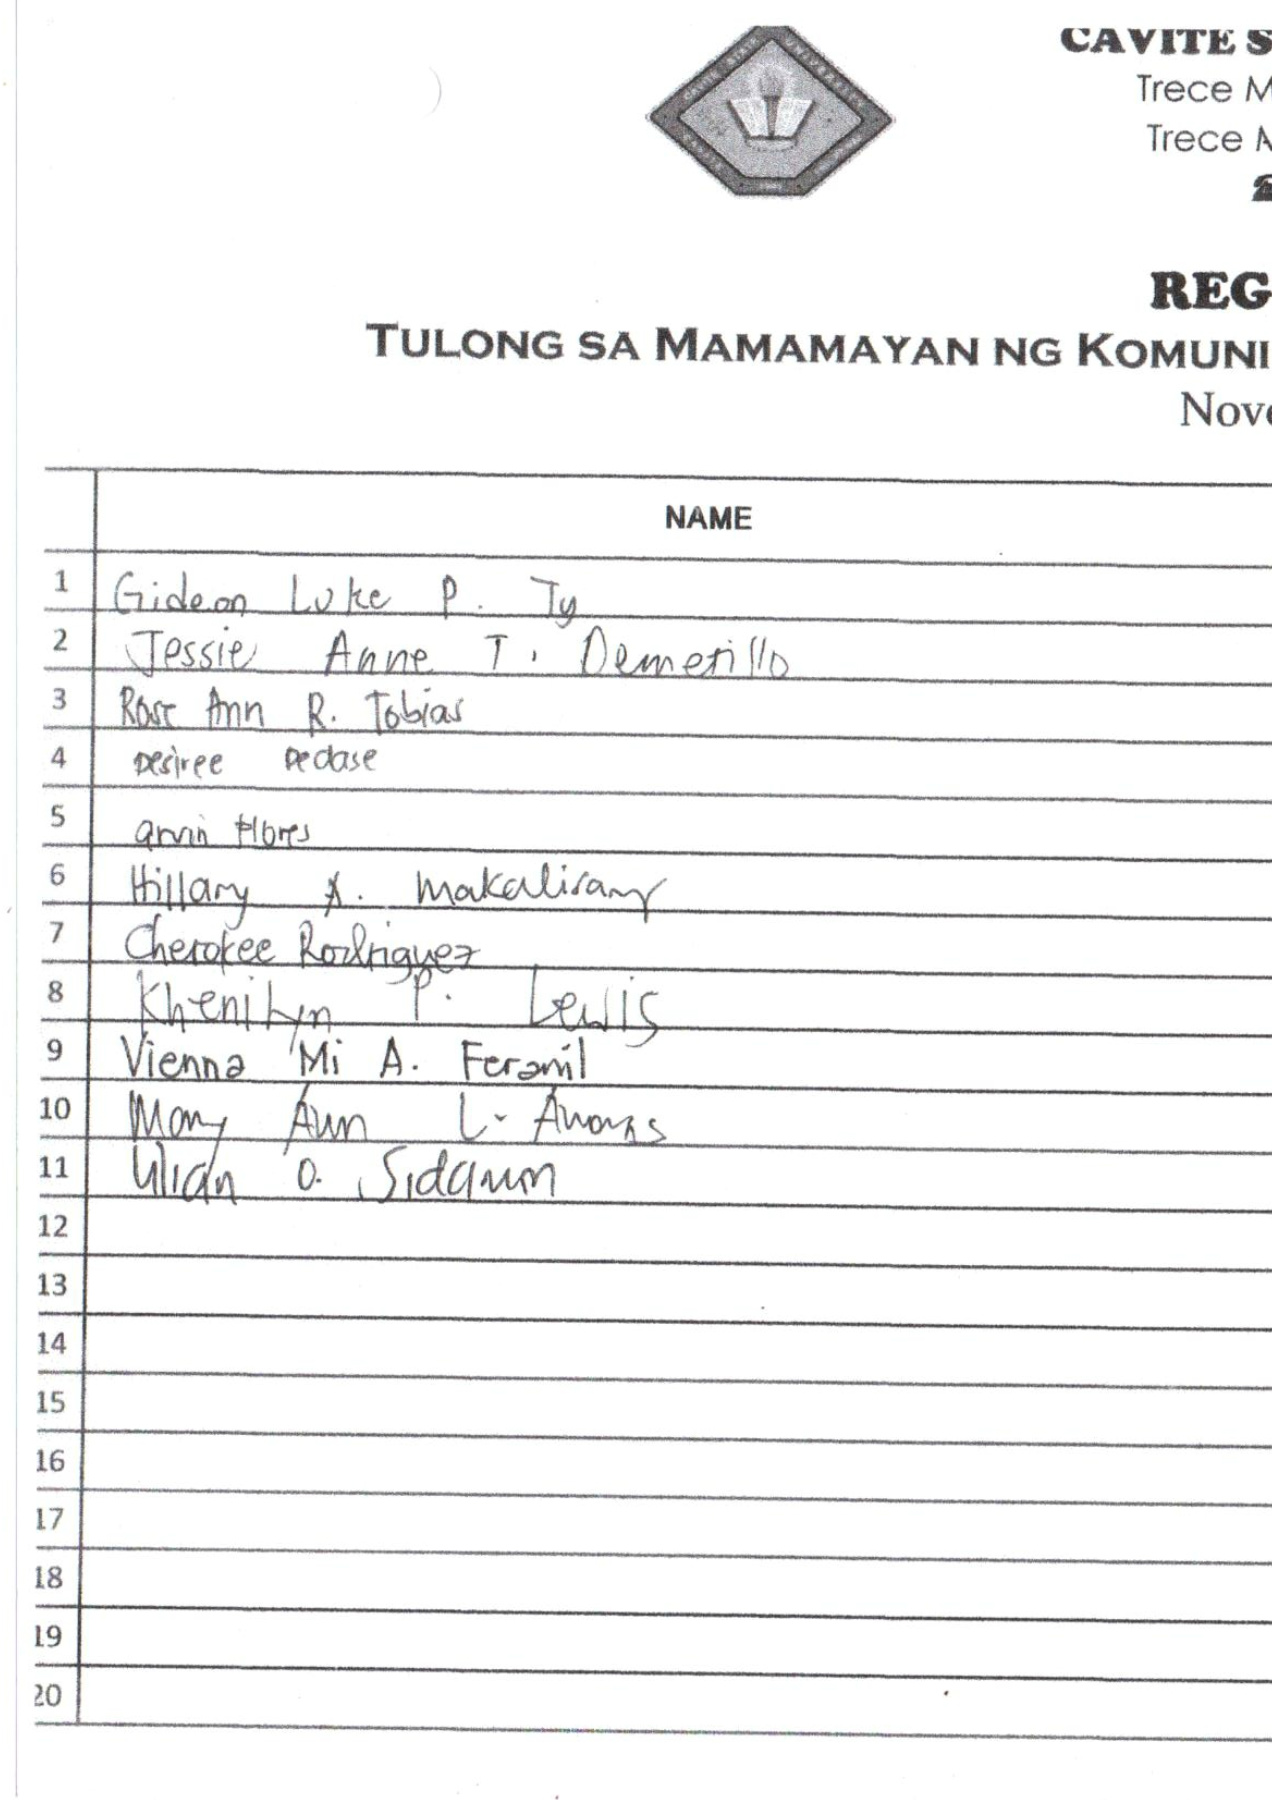 CAVITE S
Trece M
Trece M
REG
TULONG SA MAMAMAYAN NG KOMUNI
Nove
NAME
1 Gideon Luke P. Ty
2 Jessie Anne T. Demetillo
3 Rose Ann R. Tobias
4 Desiree Dedase
5 arvin Flores
6 Hillary A. Makalisang
7 Cherokee Rodriguez
8 Khenilyn P. Lewis
9 Vienna Mi A. Feranil
10 Mary Ann L.
11 O.
12
13
14
15
16
17
18
19
20